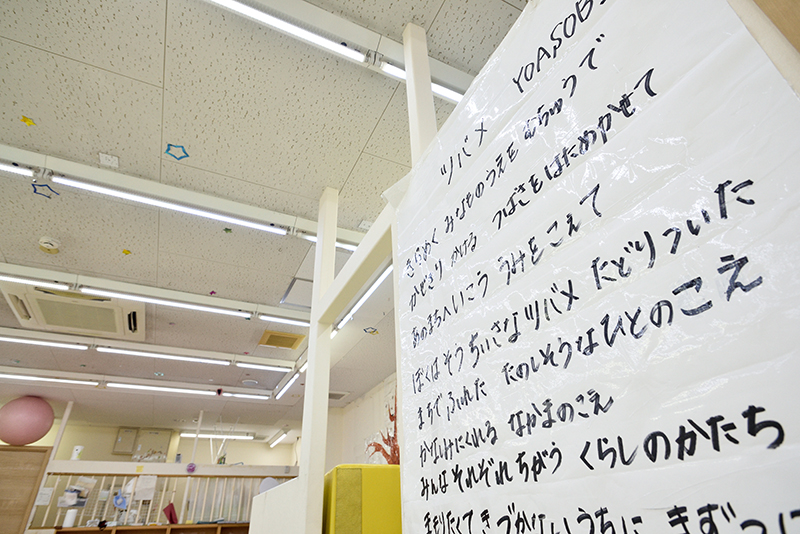 ツバメ YOASOBI
きらめく みなものうえを むちゅうで
かぜきり かける つばさをはためかせて
あのまちへいこう うみをこえて
ぼくはそう ちいさなツバメ たどりついた
まちでふれた たのしそうなひとのこえ
かなしみにくれる なかまのこえ
みんなそれぞれちがう くらしのかたち
まもりたくて きづかないうちに きずつけ